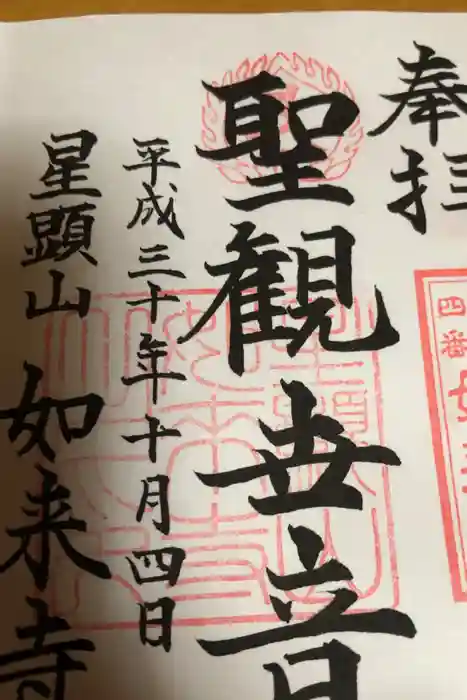 奉拝
四番
聖観世音
平成三十年十月四日
星顕山 如来寺